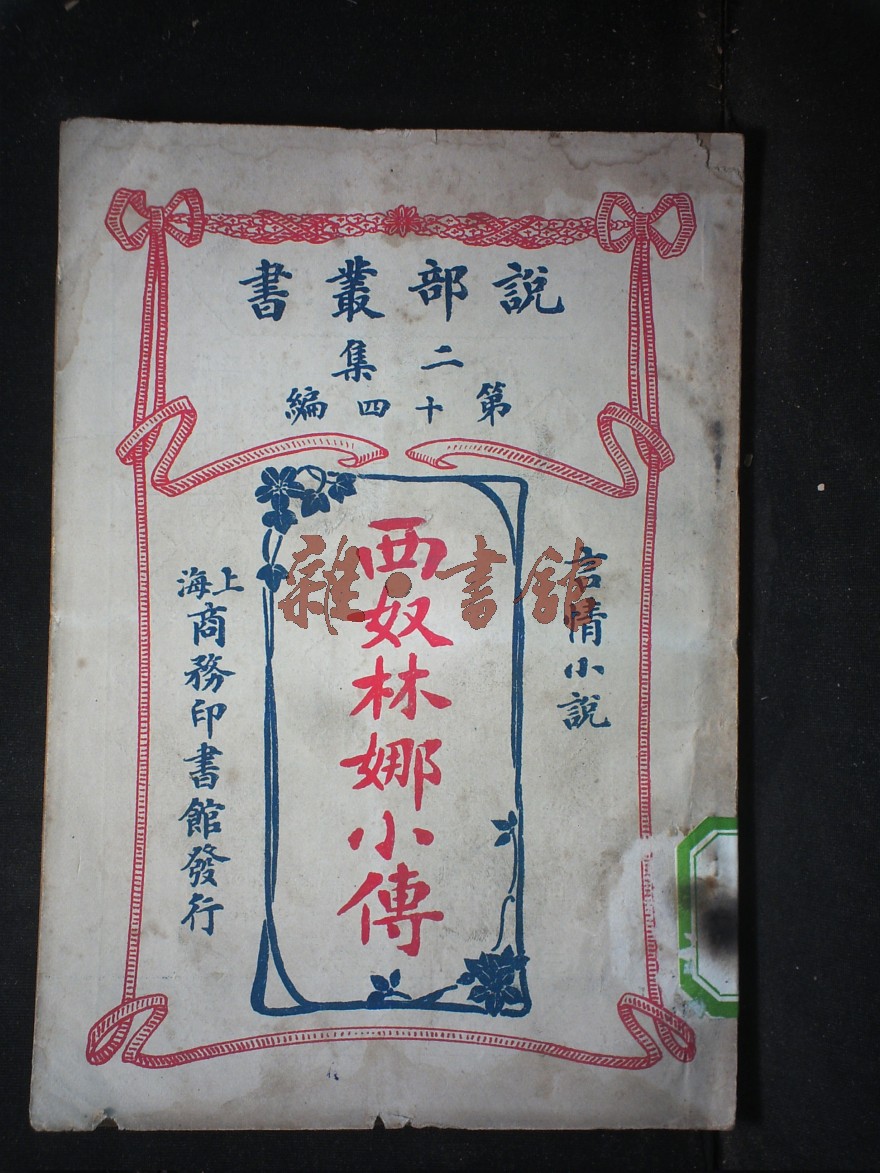 說部叢書
二集
第十四編
言情小說
西奴林娜小傳
上海
商務印書館發行
雜·書館